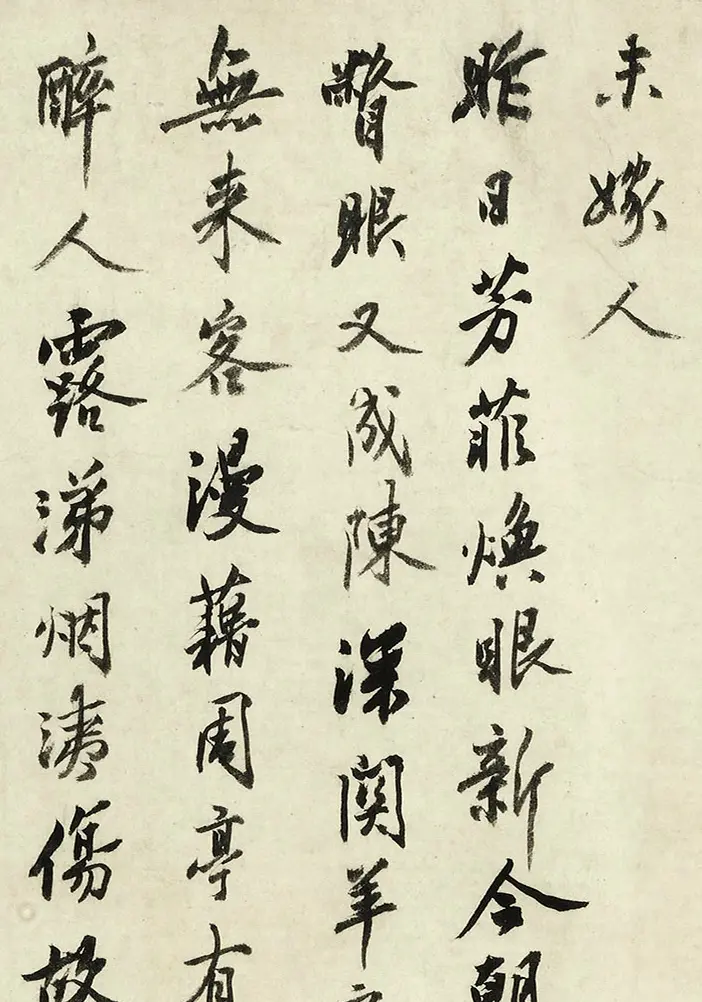 未嫁人
昨日芳菲煥眼新今朝
瞥眼又成陳深関羊
無来客漫藉周亭有
醉人露涕烟洟傷故